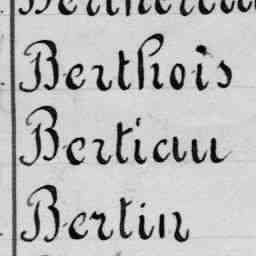 Berthois
Bertiau
Bertin